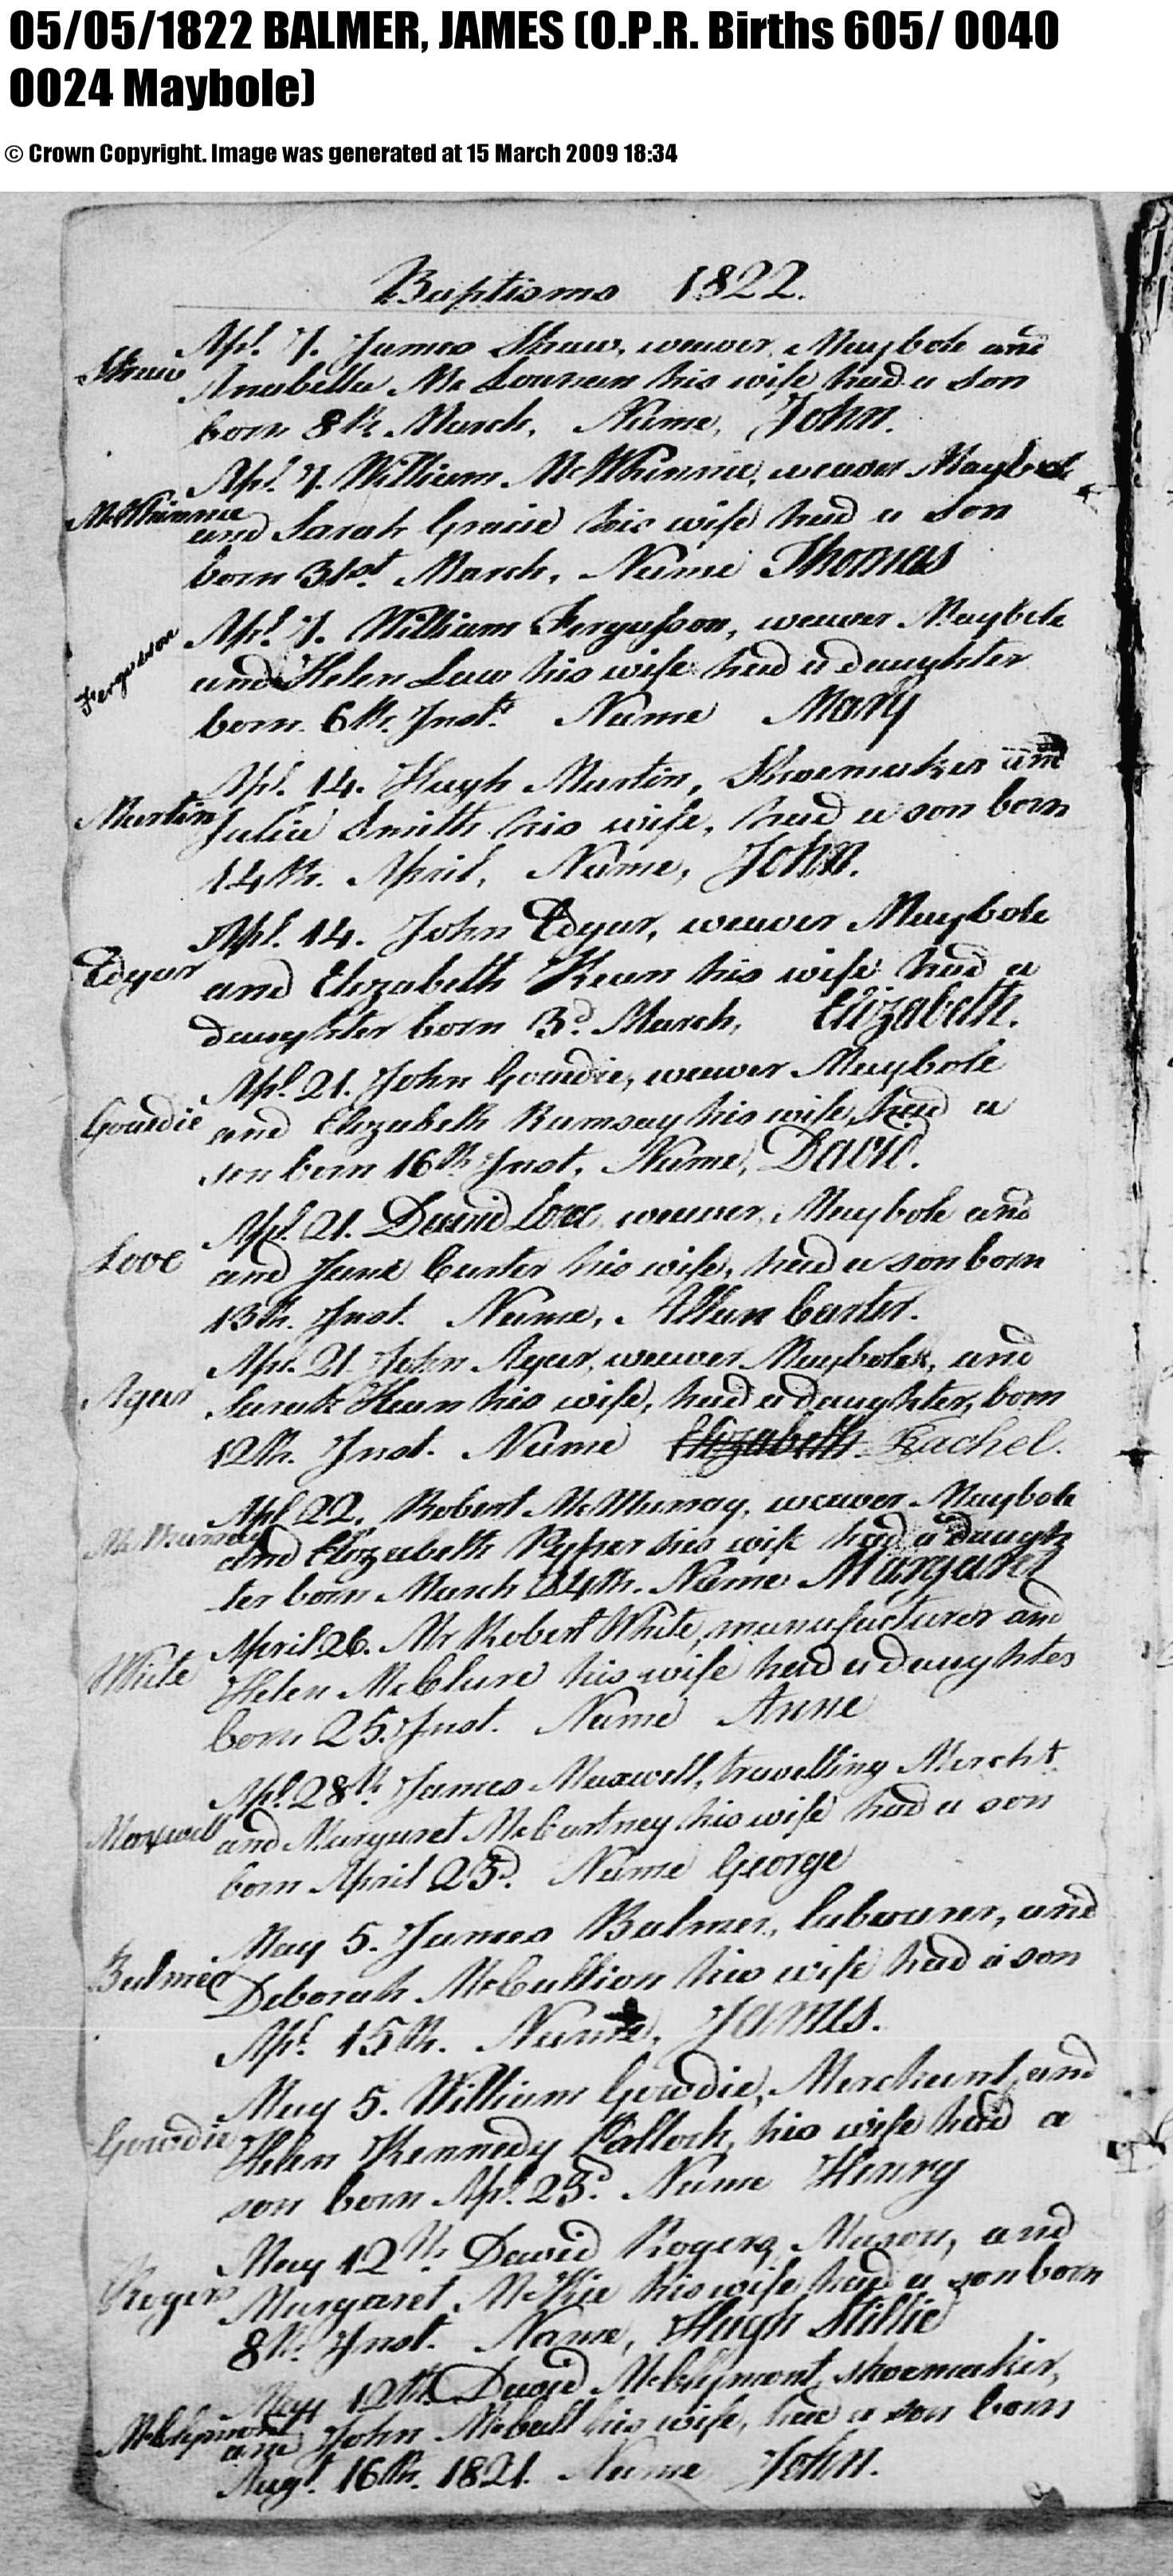 05/05/1822 BALMER, JAMES (O.P.R. Births 605/ 0040
0024 Maybole)
© Crown Copyright. Image was generated at 15 March 2009 18:34
Baptisms 1822.
Shaw
Apl. 7. James Shaw, weaver, Maybole and
Anabella his wife had a son
born 8th March, Name, John.
McWhinnie
Apl. 7. William McWhinnie, weaver Maybole
and Sarah Gracie his wife had a son
born 31st March, Name Thomas
Fergusson
Apl. 7. William Fergusson, weaver Maybole
and Helen Law his wife had a daughter
born 6th Inst. Name Mary
Martin
Apl. 14. Hugh Martin, Shoemaker and
Julia Smith his wife, had a son born
14th. April, Name, John.
Edgar
Apl. 14. John Edgar, weaver Maybole
and Elizabeth Kean his wife had a
daughter born 3d March, Elizabeth.
Goudie
Apl. 21. John Goudie, weaver Maybole
and Elizabeth Ramsay his wife, had a
son born 16th Inst, Name, David.
Love
Apl. 21. David Love weaver, Maybole and
and Jane Carter his wife, had a son born
13th. Inst. Name, Allan Carter.
Agar
Apr. 21 John Agar, weaver Maybole, and
Sarah Kean his wife, had a daughter, born
12th. Inst. Name Elizabeth. Rachel.
McMurray
Apl 22. Robert McMurray, weaver Maybole
and Elizabeth his wife had a daugh
ter born March 24th. Name Margaret
White
April 26. Mr Robert White, manufacturer and
Helen McClure his wife had a daughter
born 25. Inst. Name Anne
Maxwell
Apl. 28th James Maxwell, travelling Mercht.
and Margaret McCartney his wife had a son
born April 23d. Name George
Balmer
May 5. James Balmer, labourer, and
Deborah McCullion his wife had a son
Apl. 15th. Name, James.
Gowdie
May 5. William Gowdie, Merchant, and
Helen Kennedy his wife had a
son born Apl. 23d. Name Henry
Rogers
May 12th. David Rogers, Mason, and
Margaret McKie his wife had a son born
8th. Inst. Name, Hugh Stillie
McClymont
May 12th. David McClymont, shoemaker,
and John McCall his wife, had a son born
Augt. 16th. 1821. Name John.